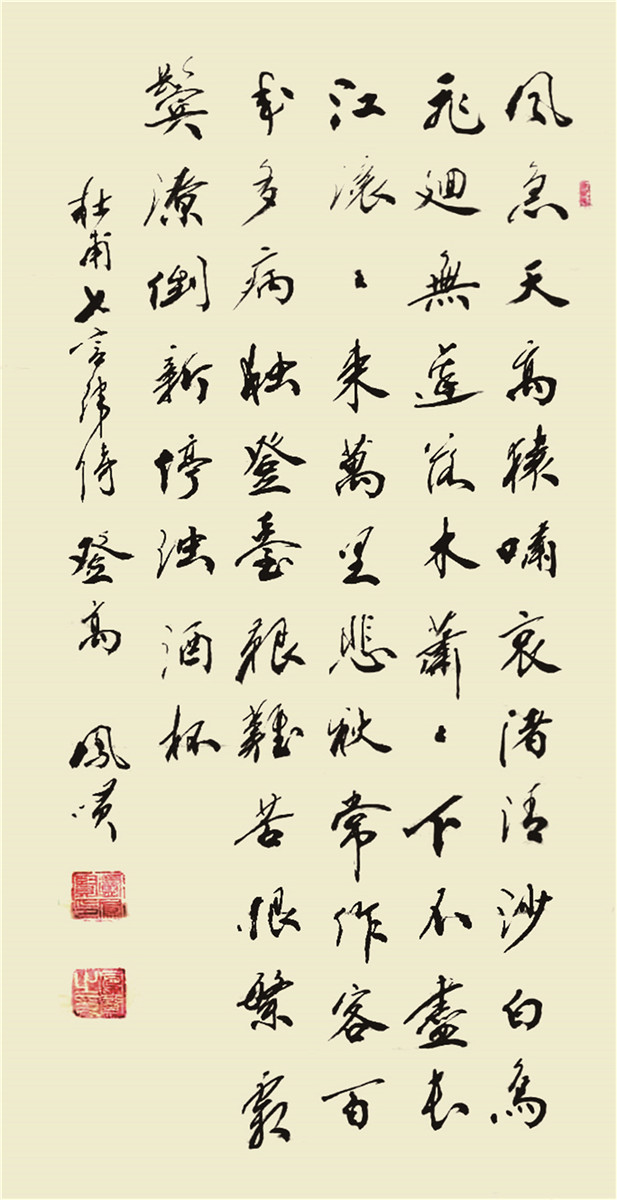 風急天高猿嘯哀渚清沙白鳥
飛迴無邊落木蕭〻下不盡長
江滾〻來萬里悲秋常作客百
年多病獨登臺艱難苦恨繁霜
鬢潦倒新停濁酒杯
杜甫七言律詩登高 鳳